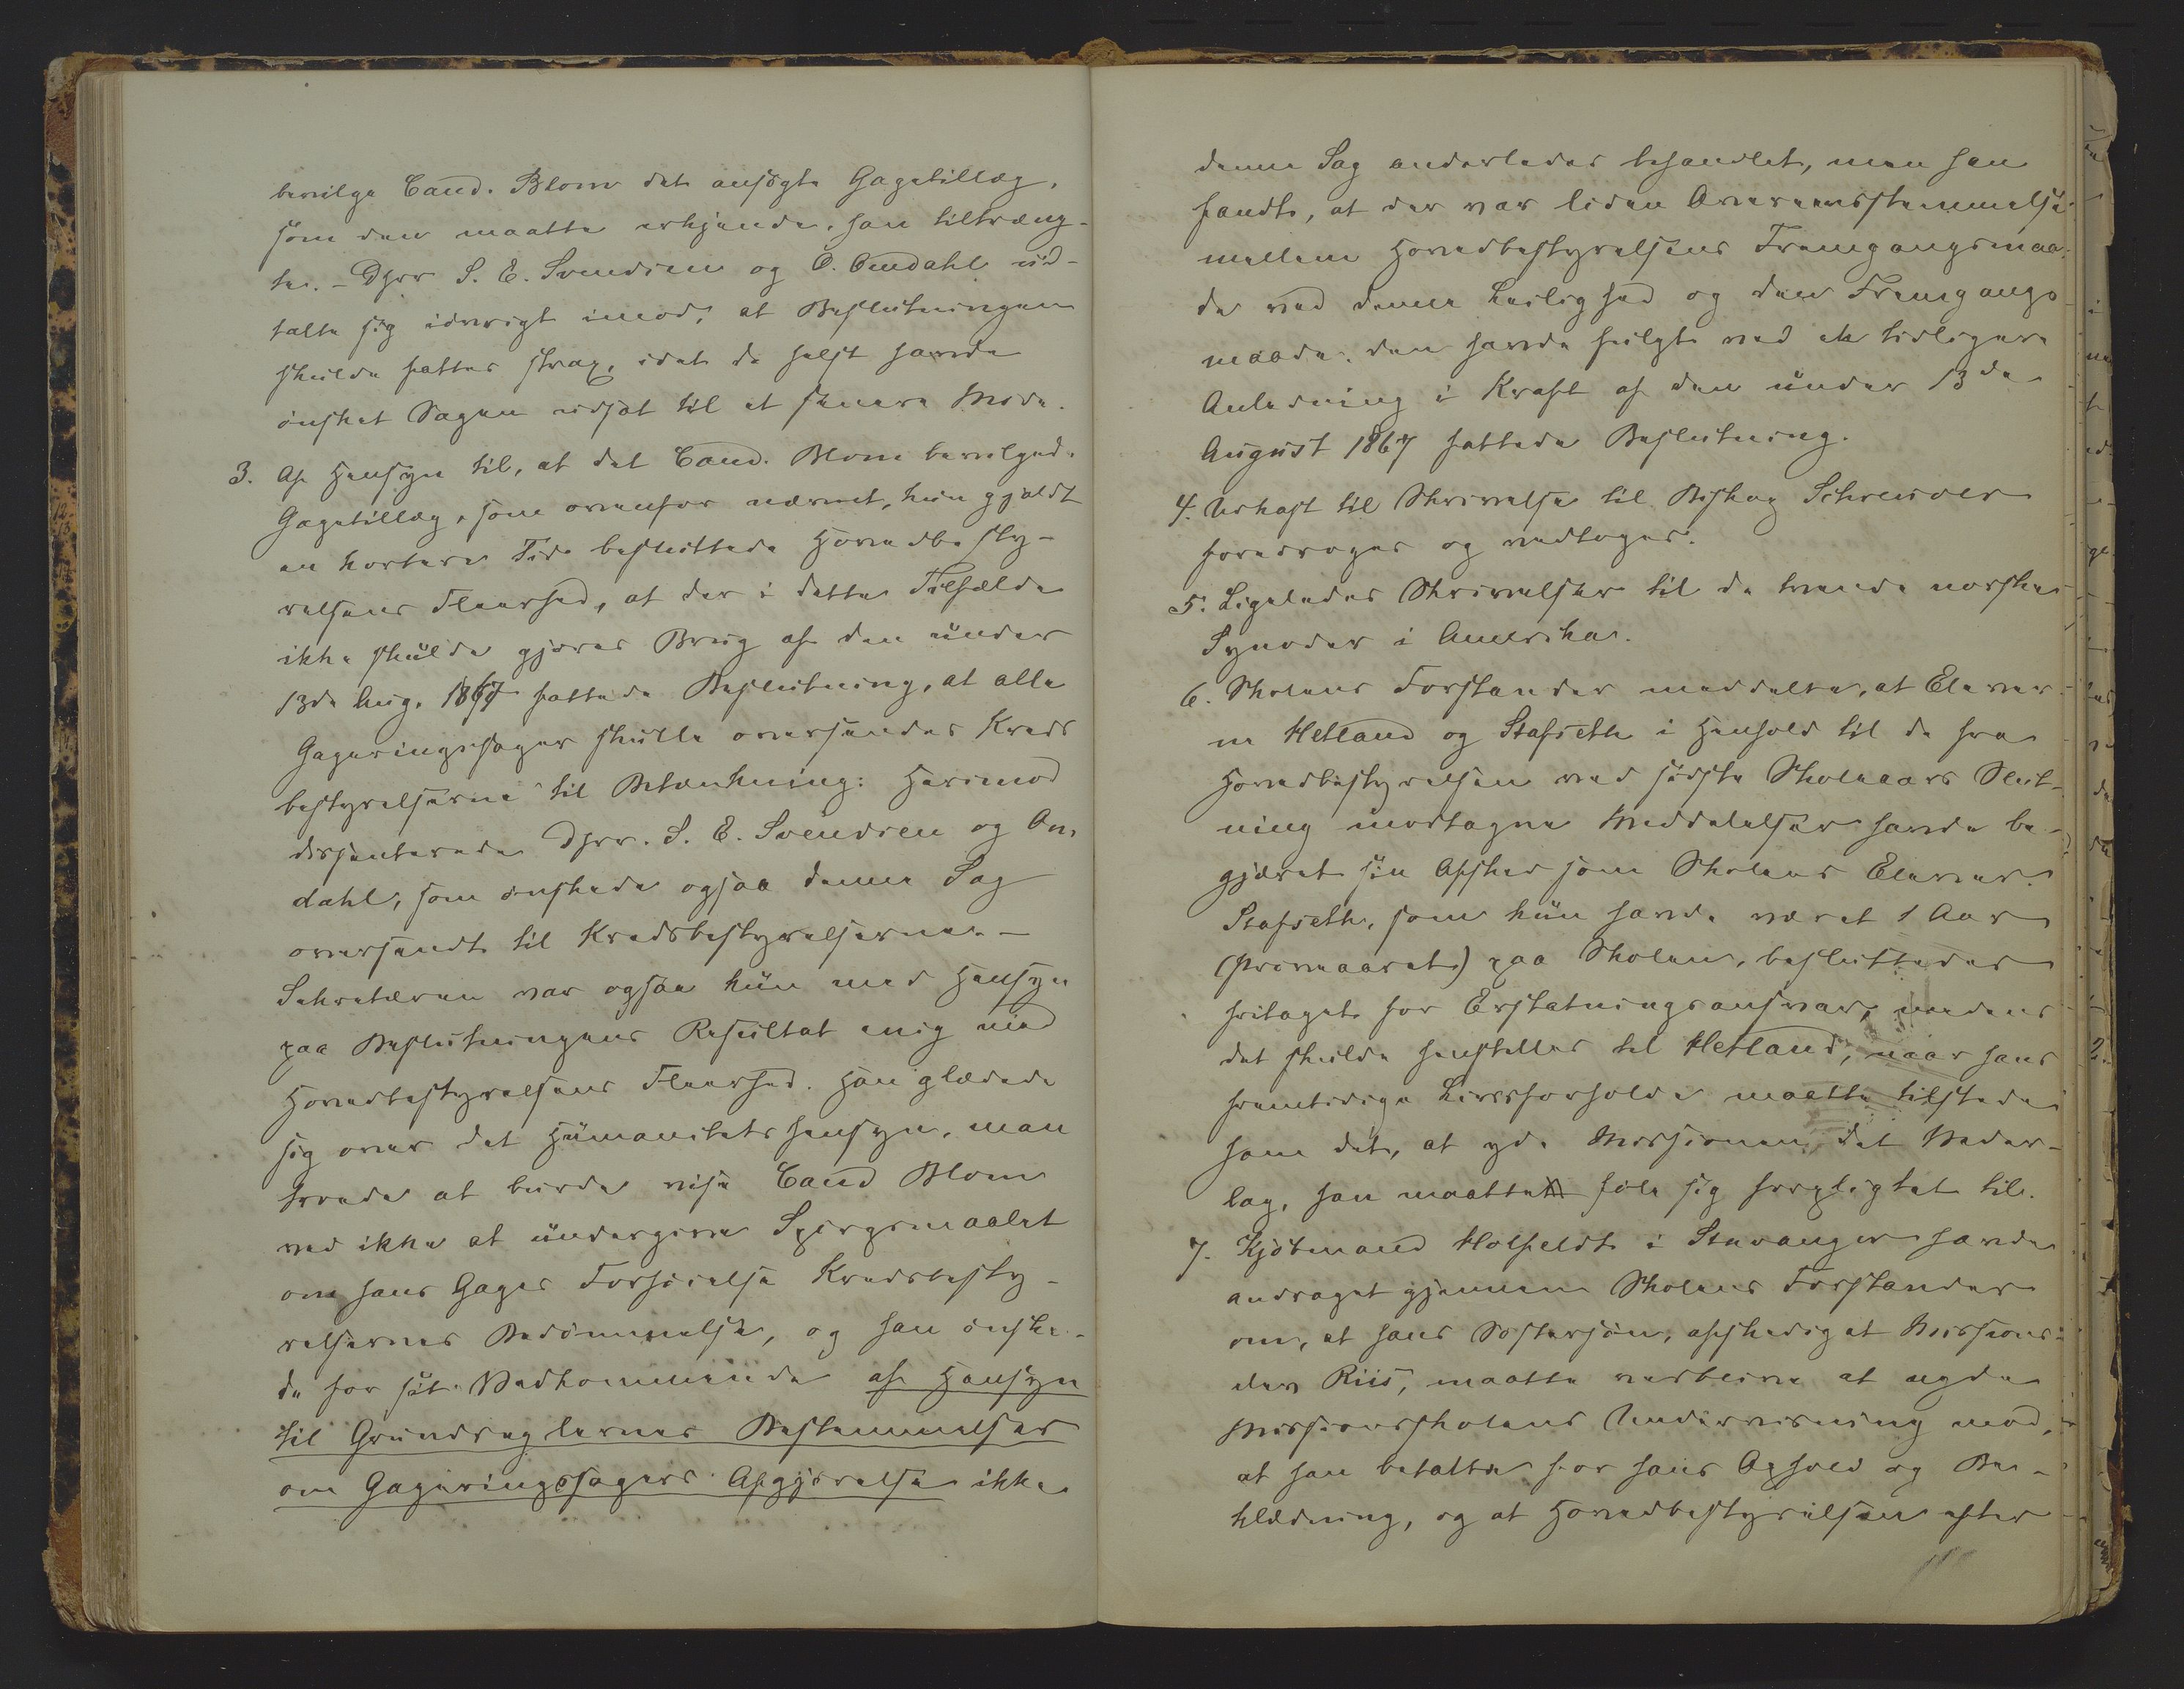 bevilge Cand. Blom det ansögte Gagetillæg,
som den maatte erkjende, han tiltræng-
te. - Dhrr S. E. Svendsen og O. Omdahl ud-
talte sig iövrigt imod, at Beslutningen
skulde fattes strax, idet de helst havde
önsket Sagen udsat til et senere Möde.
3. Af Hensyn til, at det Cand. Blom bevilgede
Gagetillæg, som ovenfor nævnt, kun gjaldt
en kortere Tid, besluttede Hovedbesty-
relsens Fleerhed, at der i dette Tilfælde
ikke skulde gjöres Brug af den under
13de Aug. 1867 fattede Beslutning, at alle
Gageringssager skulle oversendes Kreds
bestyrelserne til Betænkning: Herimod
dissenterede Dhrr. S. E. Svendsen og Om-
dahl, som önskede ogsaa denne Sag
oversendt til Kredsbestyrelserne. -
Sekretæren var ogsaa kun med Hensyn
paa Beslutningens Resultat enig med
Hovedbestyrelsens Fleerhed. Han glædede
sig over det Humanitetshensyn, man
troede at burde vise Cand Blom
ved ikke at undergive Spörgsmaalet
om hans Gages Forhöielse Kredsbesty-
relsernes Bedömmelse, og han önske-
de for sit Vedkommende af Hensyn
til Grundreglernes Bestemmelser
om Gageringssagers Afgjörelse ikke
denne Sag anderledes behandlet, men han
fandt, at der var liden Overeensstemmelse
mellem Hovedbestyrelsens Fremgangsmaa-
de ved denne Leilighed og den Fremgangs-
maade, den havde fulgt ved en tidligere
Anledning i Kraft af den under 13de
August 1867 fattede Beslutning.
4. Udkast til Skrivelse til Biskop Schreuder
foredroges og vedtoges.
5. Ligeledes Skrivelser til de tvende norske
Synoder i Amerika.
6. Skolens Forstander meddelte, at Elever-
ne Hetland og Stafseth i Henhold til de fra
Hovedbestyrelsen ved sidste Skoleaars Slut-
ning modtagne Meddelelser havde be-
gjæret sin Afsked som Skolens Elever.
Stafseth, som kun havde været 1 Aar
(Pröveaaret) paa Skolen, besluttedes
fritaget for Erstatningsansvar, medens
det skulde henstilles til Hetland, naar hans
fremtidige Livsforholde maatte tilstede
ham det, at yde Missionen det Veder-
lag, han maatte föle sig forpligtet til.
7. Kjöbmand Holfeldt i Stavanger havde
andraget gjennem Skolens Forstander
om, at hans Söstersön, afskediget Missions-
elev Riis, maatte vedblive at nyde
Missionsskolens Underviisning mod,
at han betalte for hans Ophold og Be-
klædning, og at Hovedbestyrelsen efter